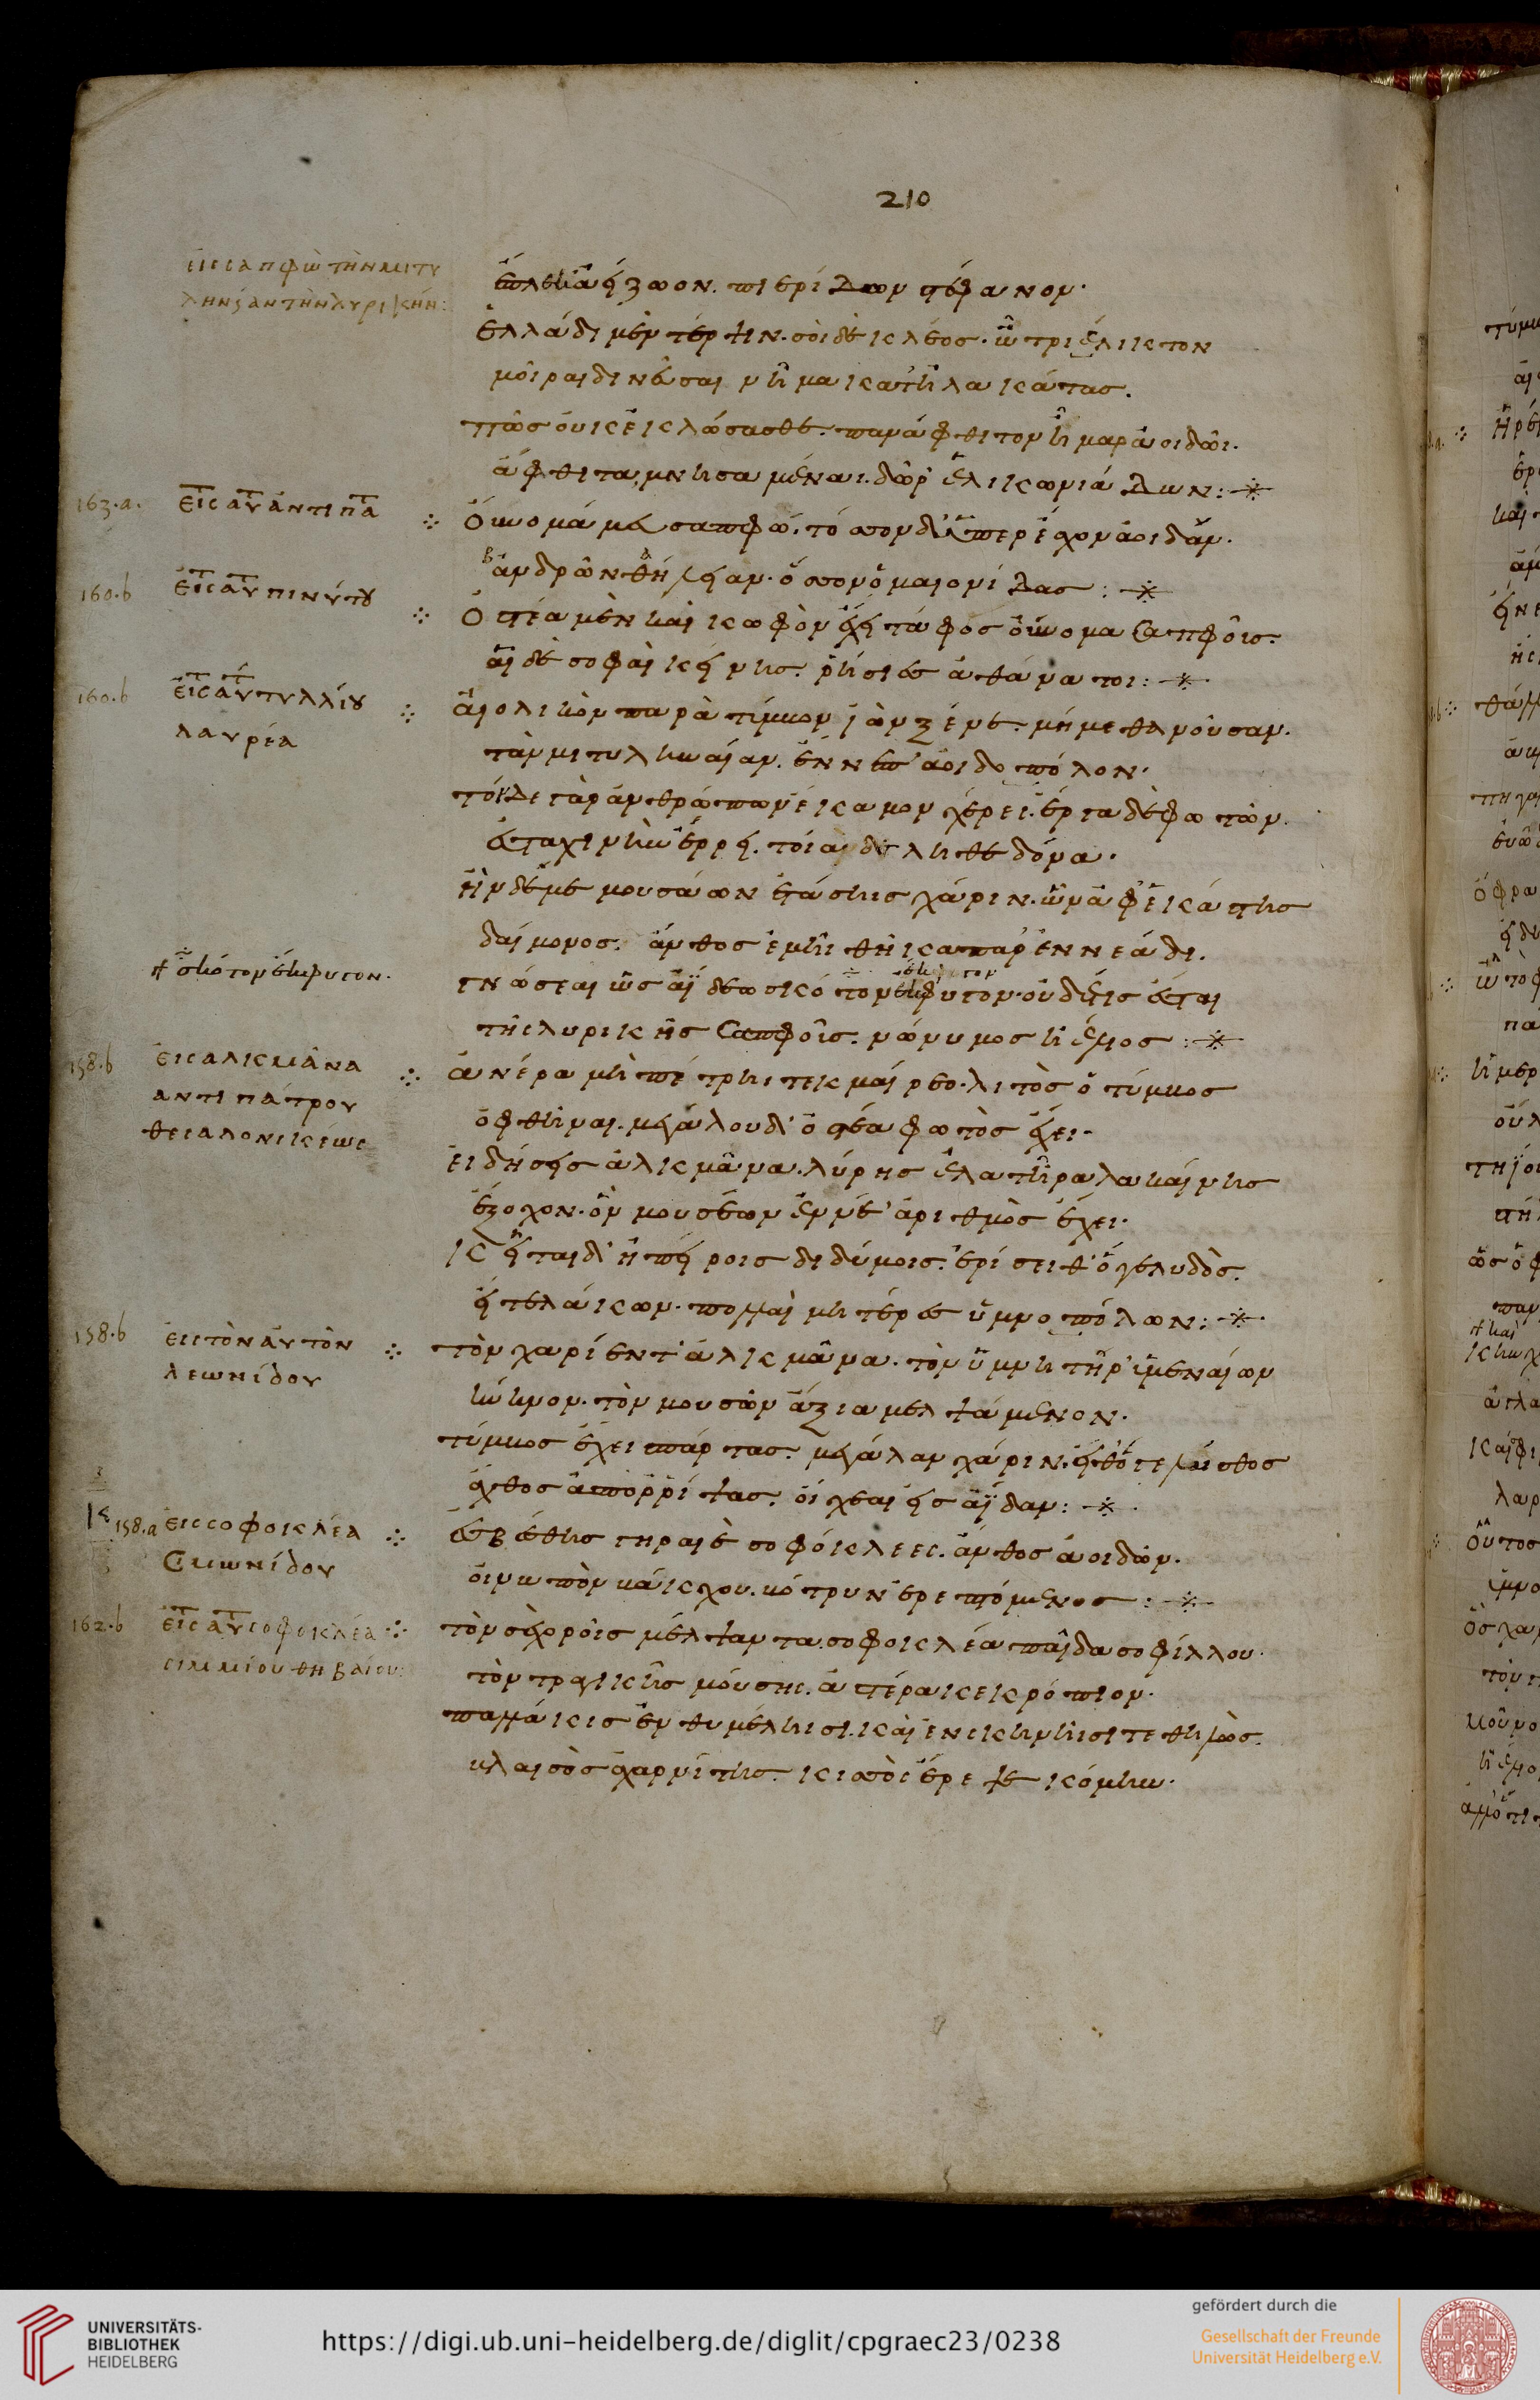 210
εἰς σαπφὼ τὴν μιτυ
ληναίαν τὴν λυρικήν:
ἔπλεκ' ἀείζωον. πιερίδων στέφανον·
ἑλλάδι μὲν τέρψιν. σοὶ δὲ κλέος. ὦ τριέλικτον
μοῖραι δινεῦσαι νῆμα κατ' ἠλακάτας.
πῶς οὐκ ἐκλώσασθε. πανάφθιτον ἦμαρ ἀοιδῶι.
ἄφθιτα μησαμέναι. δῶρ' ἑλικωνιάδων:
163.a. εἰς τ αὐτ ἀντιπα
Οὔνομά μευ σαπφώ. τόσσον δ' ὑπερέσχον ἀοιδὰν.
β ἀνδρῶν α θηλειᾶν. ὅσσον ὁ μαιονίδας:
160.b εἰς τ αὐτ πινύτου
Ὀστέα μὲν καὶ κωφὸν ἔχει τάφος οὔνομα Σαπφοῦς.
αἱ δὲ σοφαὶ κείνης ῥήσιες ἀθάνατοι:
160.b εἰς τ αὐτ τυλλίου
λαυρέα
αἰολικὸν παρὰ τύμβον ἰὼν ξένε. μή με θανοῦσαν.
τὰν μιτυληναίαν. ἔννεπ' ἀοιδοπόλον.
τόνδε γὰρ ἀνθρώπων ἔκαμον χέρες. ἔργα δὲ φωτῶν.
ἐς ταχινὴν ἔρρει. τοιάδε ληθεδόνα.
ἢν δέ με μουσάων ἐτάσης χάριν. ὧν ἀφ' ἑκάστης
δαίμονος. ἄνθος ἐμῆι θῆκα παρ' ἐννεάδι.
σκότον ἔκφυγον.
γνώσεαι ὡς ἀΐδεω σκότον ἔκφυγον. οὐδέ τις ἔσται
τῆς λυρικῆς Σαπφοῦς. νώνυμος ἠέλιος:
158.b εἰς ἀλκμᾶνα
ἀντιπάτρου
θεσσαλονικέως
ἀνέρα μὴ πέτρηι τεκμαίρεο. λιτὸς ὁ τύμβος
ὀφθῆναι. μεγάλου δ' ὀστέα φωτὸς ἔχει.
εἰδήσεις ἀλκμᾶνα. λύρης ἐλατῆρα λακαίνης
ἔξοχον. ὃν μουσέων ἐννέ' ἀριθμὸς ἔχει.
κεῖται δ' ἠπείροις διδύμοις. ἔρις εἴθ' ὅ γε λυδὸς.
εἴτε λάκων. πολλαὶ μητέρες ὑμνοπόλων:
158.b εἰς τὸν αὐτὸν
λεωνίδου
τὸν χαρίεντ' ἀλκμᾶνα. τὸν ὑμνητῆρ' ὑμεναίων
κύκνον. τὸν μουσῶν ἄξια μελψάμενον.
τύμβος ἔχει σπάρτας. μεγάλαν χάριν. εἴθ' ὅ γε λοῖσθος
ἄχθος ἀπορρίψας. οἴχεται εἰς ἀΐδαν:
158.a εἰς σοφοκλέα
Σιμωνίδου
ἐσβέσθης γηραιὲ σοφόκλεες. ἄνθος ἀοιδῶν.
οἰνωπὸν βάκχου. βότρυν ἐρεπτόμενος:
162.b εἰς τ αὐτ σοφοκλέα
σιμμίου θηβαίου:
τὸν σὲ χοροῖς μέλψαντα. σοφοκλέα παῖδα σοφίλλου.
τὸν τραγικῆς μούσης. ἀστέρα κεκρόπιον.
πολλάκις ἐν θυμέληισι. καὶ ἐν σκηνῆισι τεθηλὼς.
βλαισὸς ἀχαρνίτης. κισσὸς ἔρεψε κόμην.
UNIVERSITÄTS-
BIBLIOTHEK
HEIDELBERG
https://digi.ub.uni-heidelberg.de/diglit/cpgraec23/0238
gefördert durch die
Gesellschaft der Freunde
Universität Heidelberg e.V.